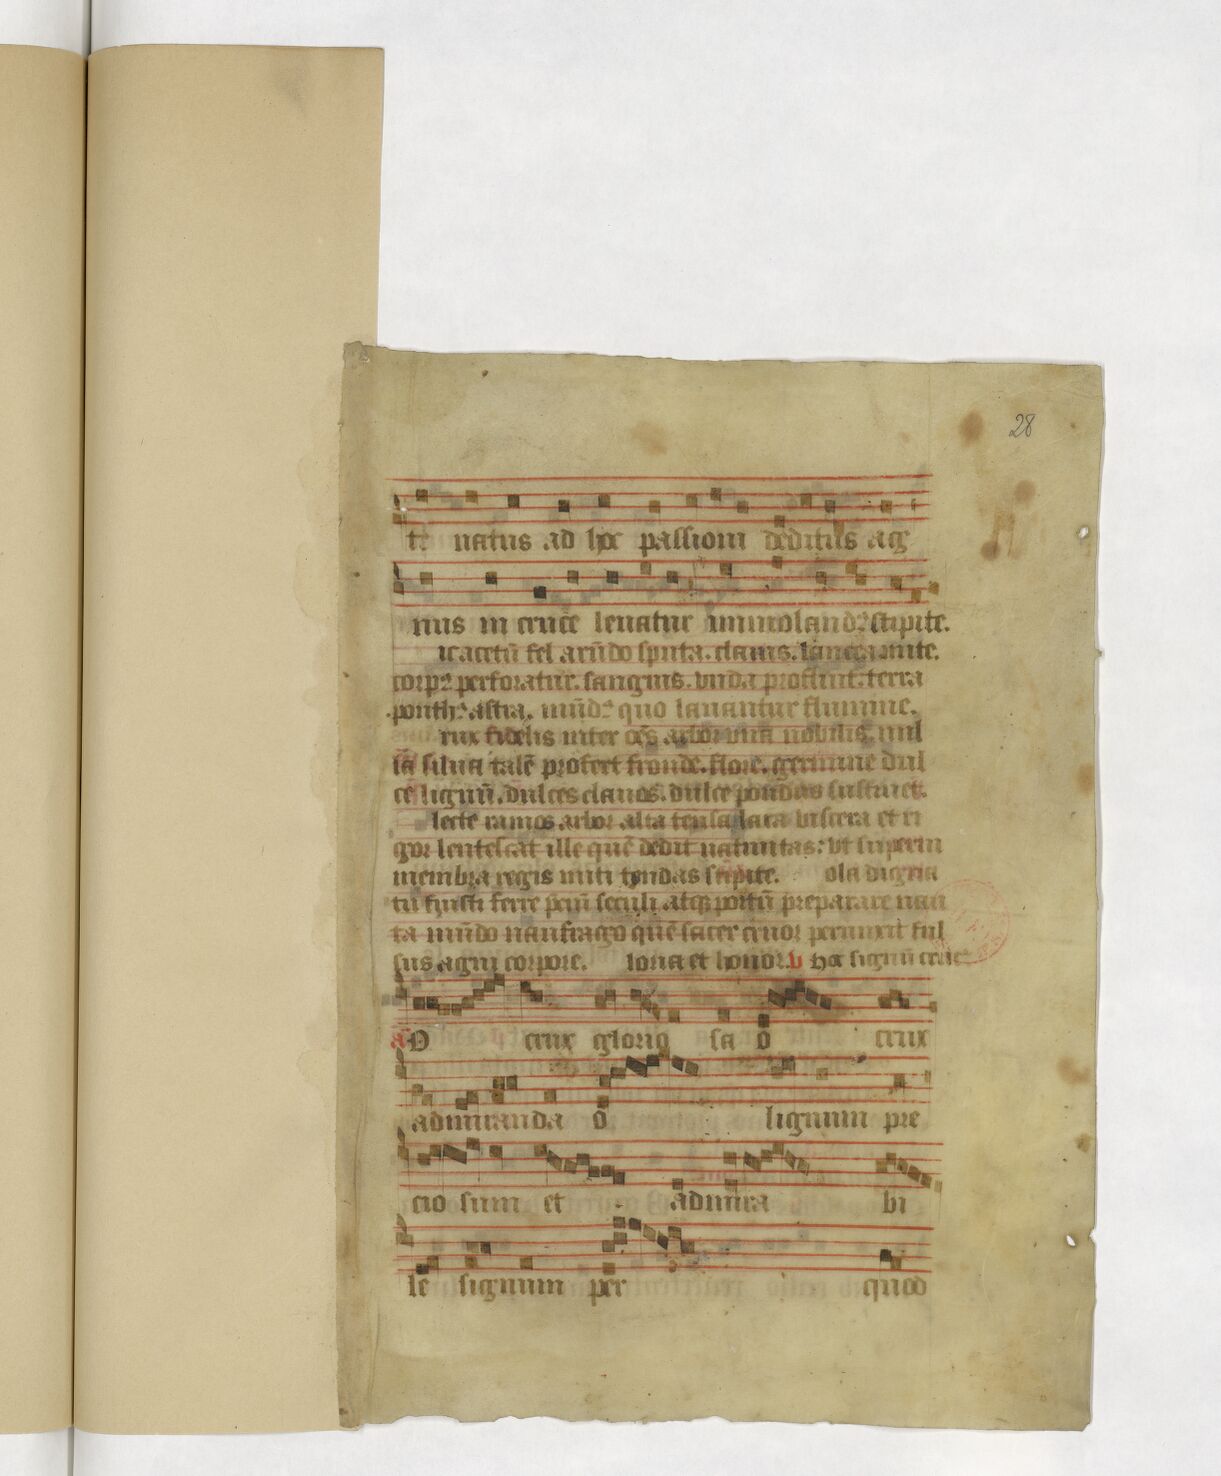 28
te natus ad hoc passioni deditus ag
nus in cruce leuatur immolandꝰ stipite.
ic acetū fel arūdo sputa. clauis. lancea mite.
corpꝰ perforatur. sanguis. unda profluit. terra
ponthꝰ. astra. mūdꝰ quo lauantur flumine.
rux fidelis inter oēs arbor una nobilis. nul
la silua talē profert fronde. flore. germine dul
ce lignū. dulces clauos. dulce pondus sustinet.
lecte ramos arbor alta tensa laxa viscera et ri
gor lentescat ille quē dedit natiuitas: vt superni
membra regis miti tendas stipite. ola digna
tu fuisti ferre p̄ciū seculi. atqꝫ portū preparare nau
ta mūdo naufrago quē sacer cruor perunxit fu
sus agni corpore. loria et honor. v Hoc signū cruc
a O crux glorio sa o crux
admiranda o lignum pre
cio sum et admira bi
le signum per quod